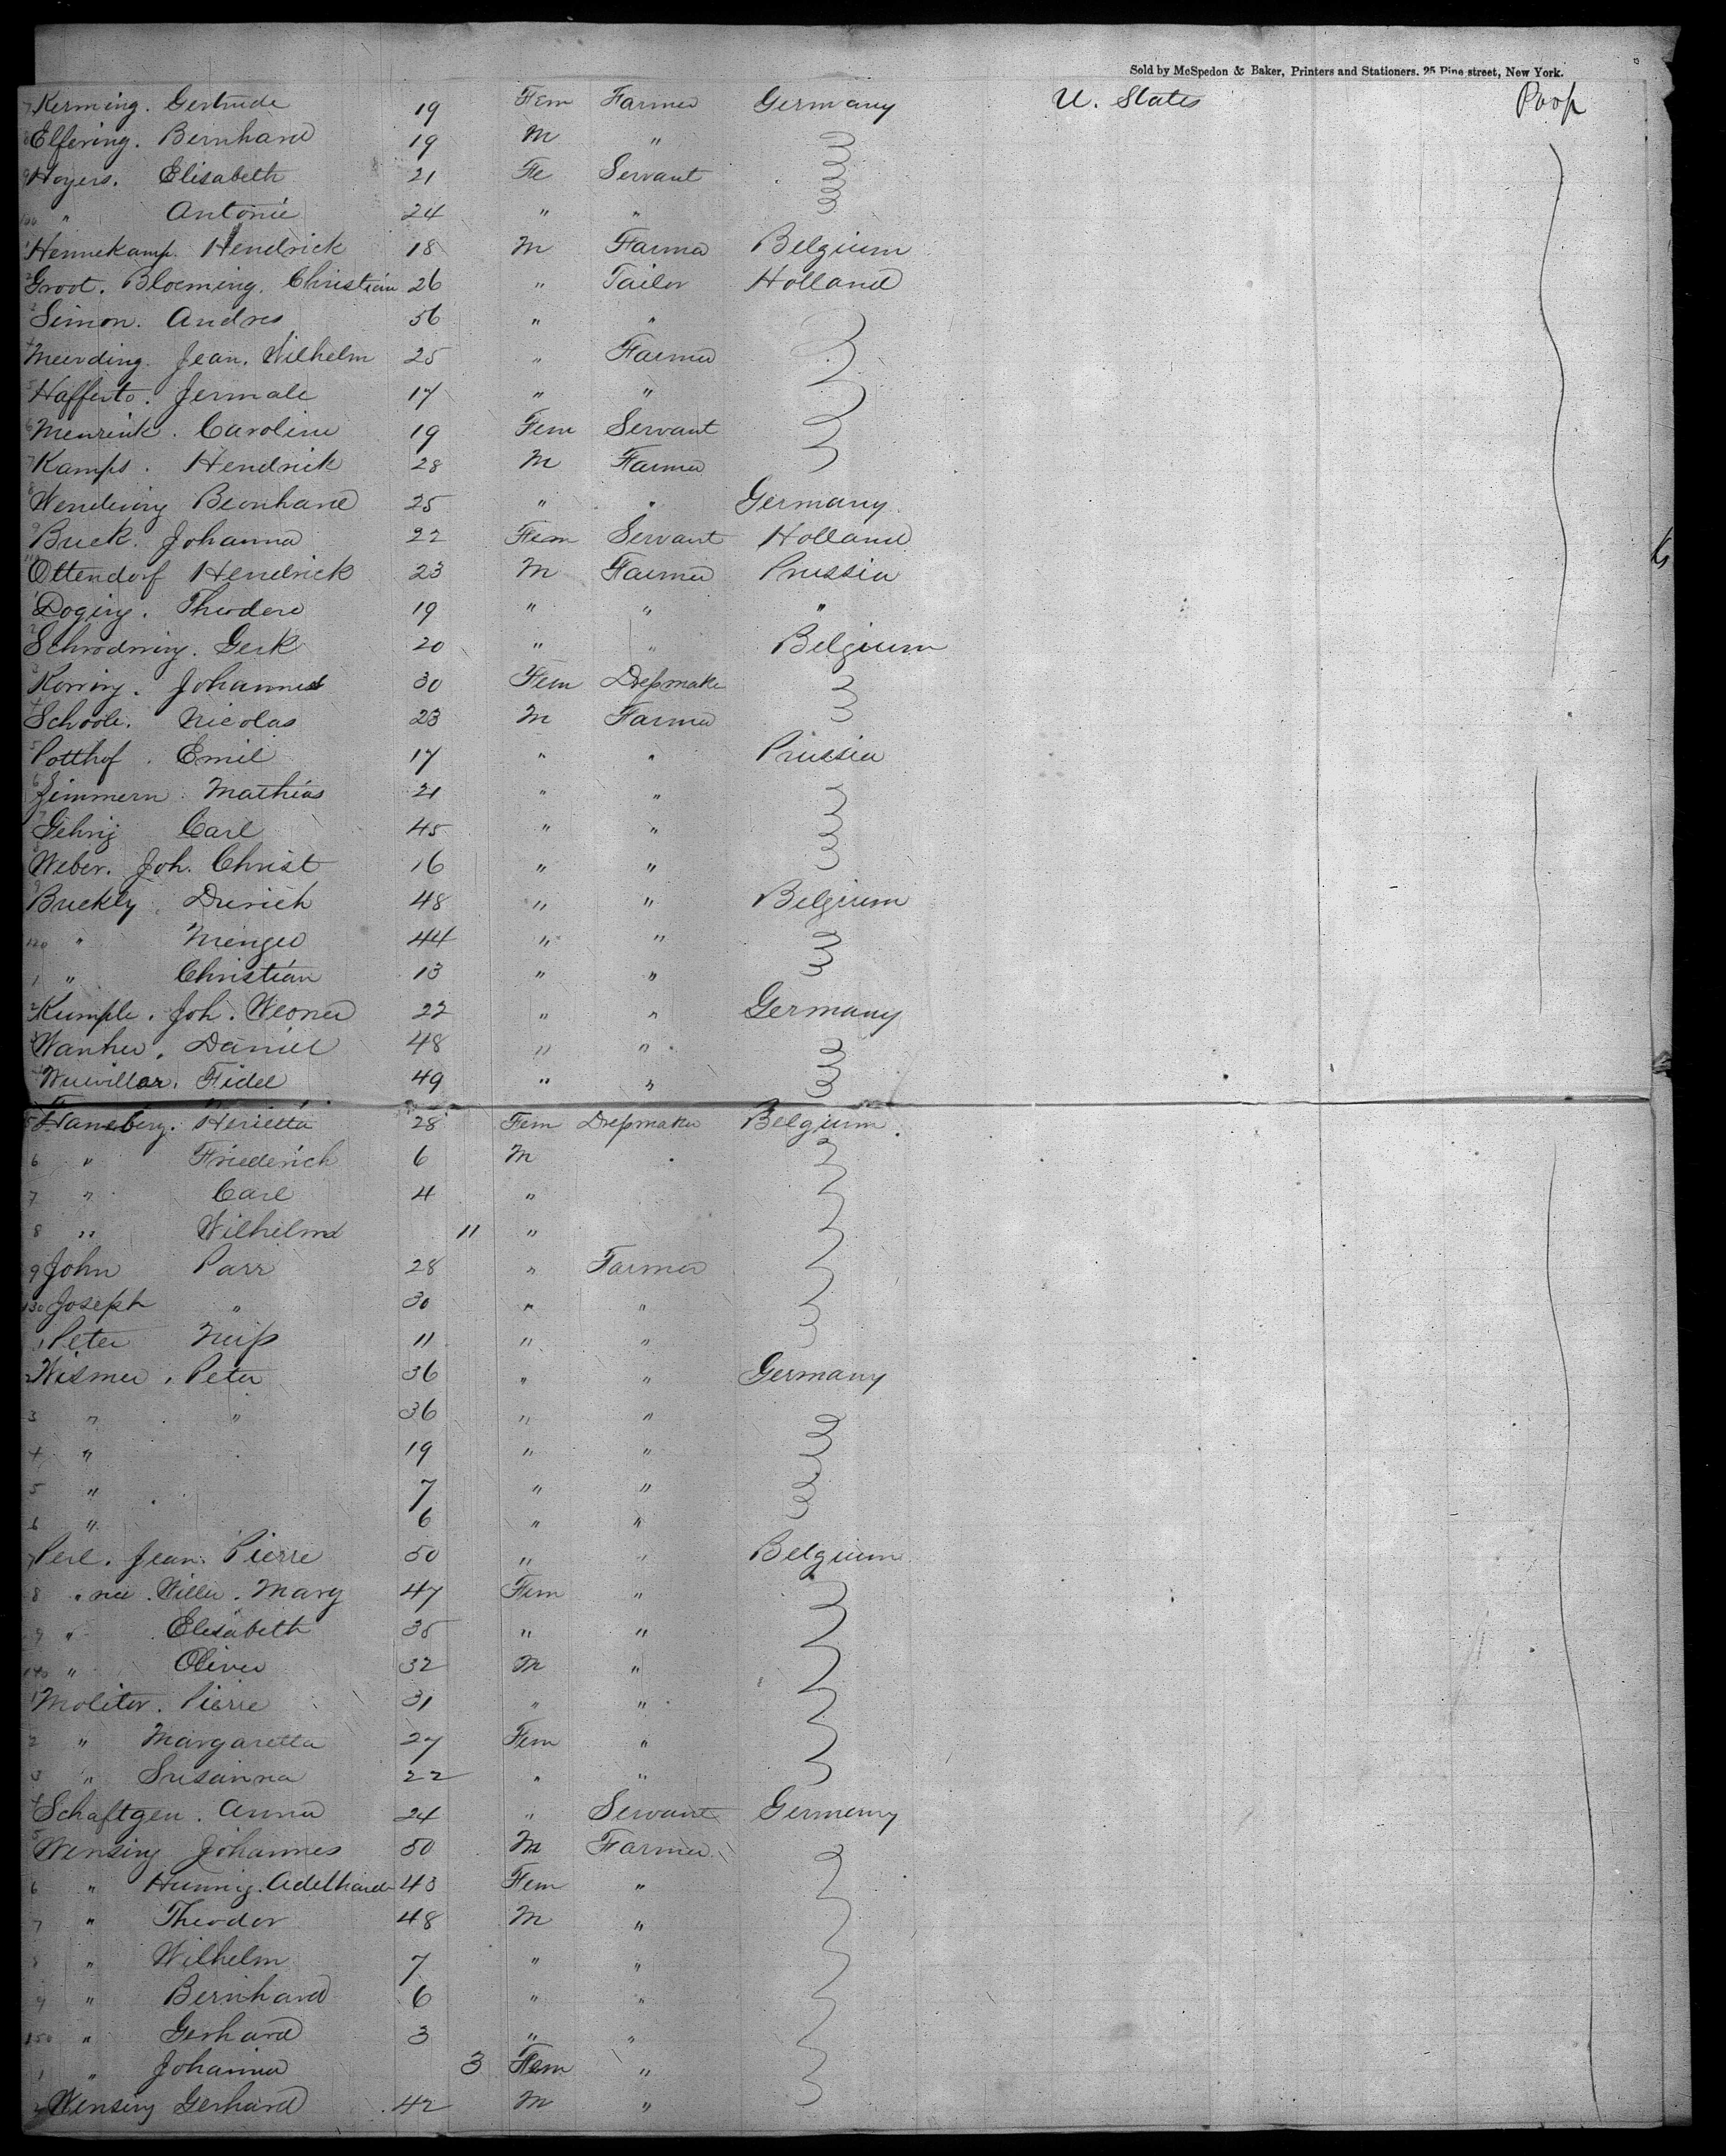 Sold by McSpedon & Baker, Printers and Stationers. 25 Pine street, New York.
7 Kerming. Gertrude 19 Fem Farmer Germany U. States Poop
8 Elfering. Bernhard 19 M "
9 Hoyers. Elisabeth 21 Fe Servant
100 " Antonie 24 " "
1 Hennekamp. Hendrick 18 M Farmer Belgium
2 Groot. Bloeming. Christian 26 " Tailor Holland
3 Simon. Andres 56 " "
4 Meerding. Jean. Wilhelm 25 " Farmer
5 Hafferts. Jermale 17 " "
6 Menrink. Caroline 19 Fem Servant
7 Kamps. Hendrick 28 M Farmer
8 Wendeving Bernhard 25 " " Germany
9 Buck. Johanna 22 Fem Servant Holland
110 Ottendorf Hendrick 23 M Farmer Prussia
1 Doging. Theodere 19 " " "
2 Schrodring. Gerk 20 " " Belgium
3 Korring. Johannes 30 Fem Dressmaker
4 Schoole. Nicolas 23 M Farmer
5 Potthof. Emil 17 " " Prussia
6 Zimmern. Mathias 21 " "
7 Gehrig Carl 45 " "
8 Weber. Joh. Christ 16 " "
9 Buckly. Durich 48 " " Belgium
120 " Menger 44 " "
1 " Christian 13 " "
2 Kumple. Joh. Werner 22 " " Germany
3 Wanher. Daniel 48 " "
4 Wuwillar. Fidel 49 " "
5 Haneberg. Herietta 28 Fem Dressmaker Belgium.
6 " Friederich 6 M
7 " Carl 4 "
8 " Wilhelm 11 "
9 John Parr 28 " Farmer
130 Joseph " 30 " "
1 Peter Neiss 11 " "
2 Wismer. Peter 36 " " Germany
3 " " 36 " "
4 " 19 " "
5 " 7 " "
6 " 6 " "
7 Perl. Jean. Pierre 50 " " Belgium
8 " née. Willer. Mary 47 Fem "
9 " Elisabeth 35 " "
140 " Oliver 32 M "
1 Molitor. Pierre 31 " "
2 " Margaretta 27 Fem "
3 " Susanna 22 " "
4 Schaftgen. Anna 24 " Servant Germany
5 Wensing Johannes 50 M Farmer
6 " Hunnig. Adelhard 43 Fem "
7 " Theodor 48 M "
8 " Wilhelm 7 " "
9 " Bernhard 6 " "
150 " Gerhard 3 " "
1 " Johanna 3 Fem "
2 Wensing Gerhard 42 M "